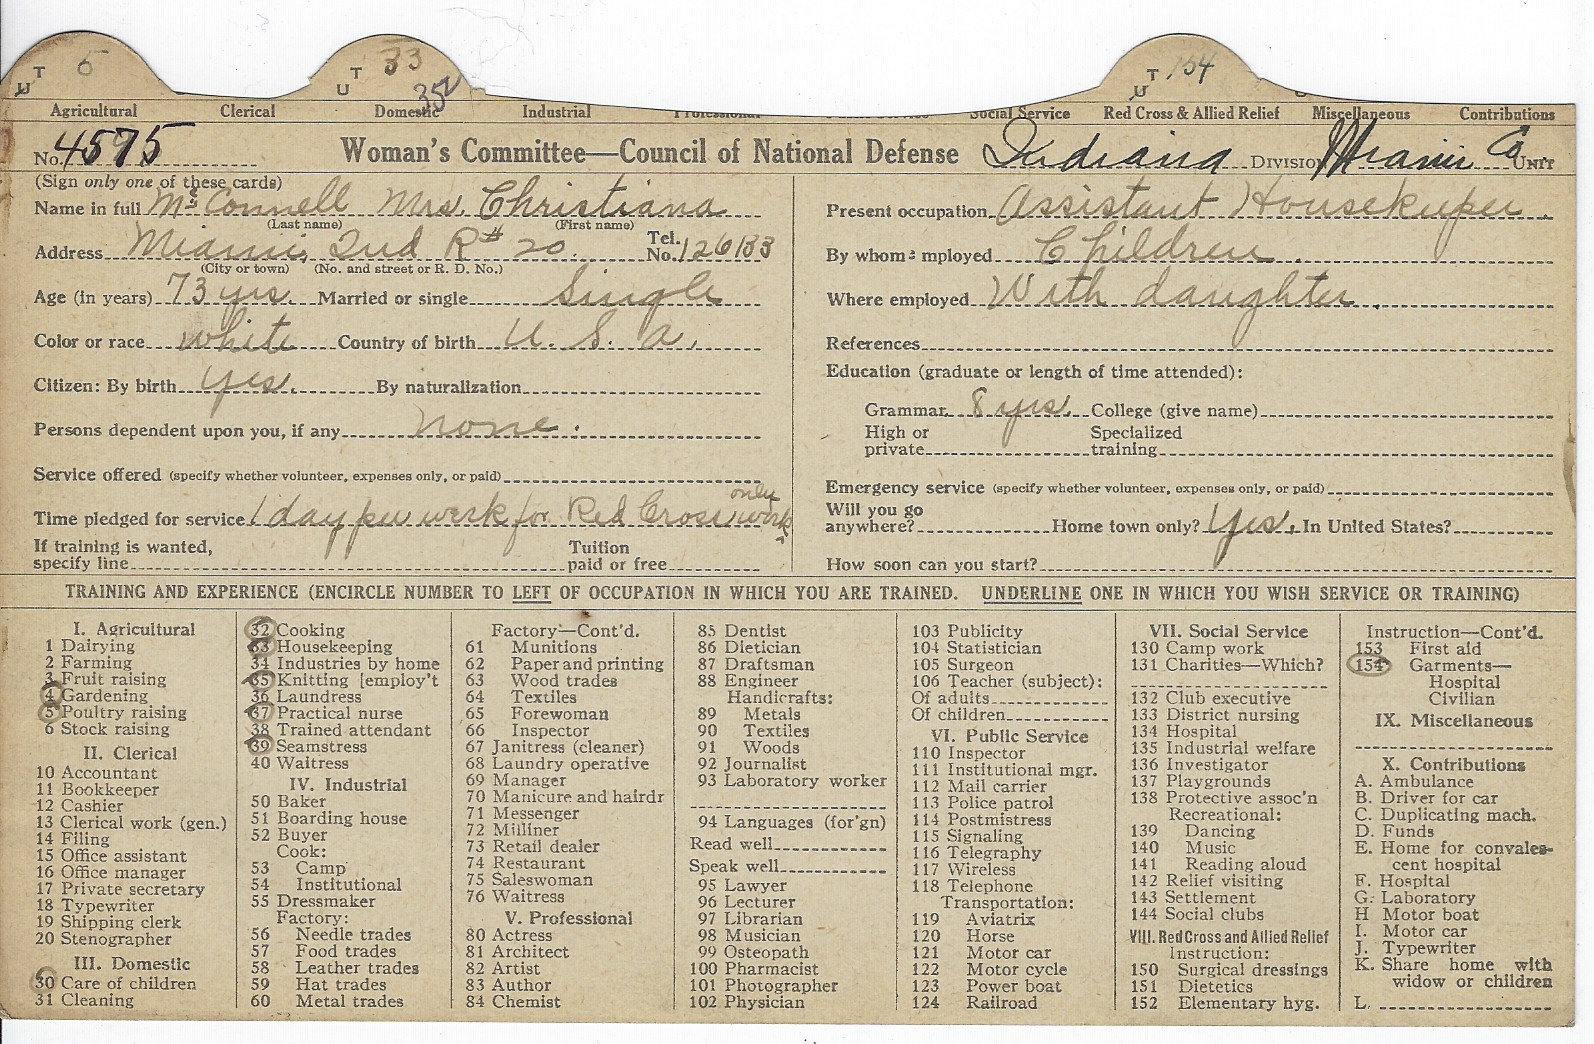 T 5 T 33 T 154
U U 35 U
Agricultural Clerical Domestic Industrial Professional Social Service Red Cross & Allied Relief Miscellaneous Contributions
No. 4575 Woman's Committee—Council of National Defense Indiana DIVISION Miami Co UNIT
(Sign only one of these cards)
Name in full McConnell Mrs. Christiana
(Last name) (First name)
Address Miami, Ind R# 20. Tel. No. 126133
(City or town) (No. and street or R. D. No.)
Age (in years) 73 yrs. Married or single Single
Color or race white Country of birth U. S. a.
Citizen: By birth yes. By naturalization
Persons dependent upon you, if any none.
Service offered (specify whether volunteer, expenses only, or paid)
only
Time pledged for service 1 day per week for Red Cross work
If training is wanted, Tuition
specify line paid or free
Present occupation Assistant Housekeeper
By whom employed Children.
Where employed With daughter.
References
Education (graduate or length of time attended):
Grammar 8 yrs. College (give name)
High or Specialized
private training
Emergency service (specify whether volunteer, expenses only, or paid)
Will you go
anywhere? Home town only? Yes. In United States?
How soon can you start?
TRAINING AND EXPERIENCE (ENCIRCLE NUMBER TO LEFT OF OCCUPATION IN WHICH YOU ARE TRAINED. UNDERLINE ONE IN WHICH YOU WISH SERVICE OR TRAINING)
I. Agricultural
1 Dairying
2 Farming
3 Fruit raising
4 Gardening
5 Poultry raising
6 Stock raising
II. Clerical
10 Accountant
11 Bookkeeper
12 Cashier
13 Clerical work (gen.)
14 Filing
15 Office assistant
16 Office manager
17 Private secretary
18 Typewriter
19 Shipping clerk
20 Stenographer
III. Domestic
30 Care of children
31 Cleaning
32 Cooking
33 Housekeeping
34 Industries by home
35 Knitting [employ't
36 Laundress
37 Practical nurse
38 Trained attendant
39 Seamstress
40 Waitress
IV. Industrial
50 Baker
51 Boarding house
52 Buyer
Cook:
53 Camp
54 Institutional
55 Dressmaker
Factory:
56 Needle trades
57 Food trades
58 Leather trades
59 Hat trades
60 Metal trades
Factory—Cont'd.
61 Munitions
62 Paper and printing
63 Wood trades
64 Textiles
65 Forewoman
66 Inspector
67 Janitress (cleaner)
68 Laundry operative
69 Manager
70 Manicure and hairdr
71 Messenger
72 Milliner
73 Retail dealer
74 Restaurant
75 Saleswoman
76 Waitress
V. Professional
80 Actress
81 Architect
82 Artist
83 Author
84 Chemist
85 Dentist
86 Dietician
87 Draftsman
88 Engineer
Handicrafts:
89 Metals
90 Textiles
91 Woods
92 Journalist
93 Laboratory worker
94 Languages (for'gn)
Read well
Speak well
95 Lawyer
96 Lecturer
97 Librarian
98 Musician
99 Osteopath
100 Pharmacist
101 Photographer
102 Physician
103 Publicity
104 Statistician
105 Surgeon
106 Teacher (subject):
Of adults
Of children
VI. Public Service
110 Inspector
111 Institutional mgr.
112 Mail carrier
113 Police patrol
114 Postmistress
115 Signaling
116 Telegraphy
117 Wireless
118 Telephone
Transportation:
119 Aviatrix
120 Horse
121 Motor car
122 Motor cycle
123 Power boat
124 Railroad
VII. Social Service
130 Camp work
131 Charities—Which?
132 Club executive
133 District nursing
134 Hospital
135 Industrial welfare
136 Investigator
137 Playgrounds
138 Protective assoc'n
Recreational:
139 Dancing
140 Music
141 Reading aloud
142 Relief visiting
143 Settlement
144 Social clubs
VIII. Red Cross and Allied Relief
Instruction:
150 Surgical dressings
151 Dietetics
152 Elementary hyg.
Instruction—Cont'd.
153 First aid
154 Garments—
Hospital
Civilian
IX. Miscellaneous
X. Contributions
A. Ambulance
B. Driver for car
C. Duplicating mach.
D. Funds
E. Home for convales-
cent hospital
F. Hospital
G. Laboratory
H Motor boat
I. Motor car
J. Typewriter
K. Share home with
widow or children
L.